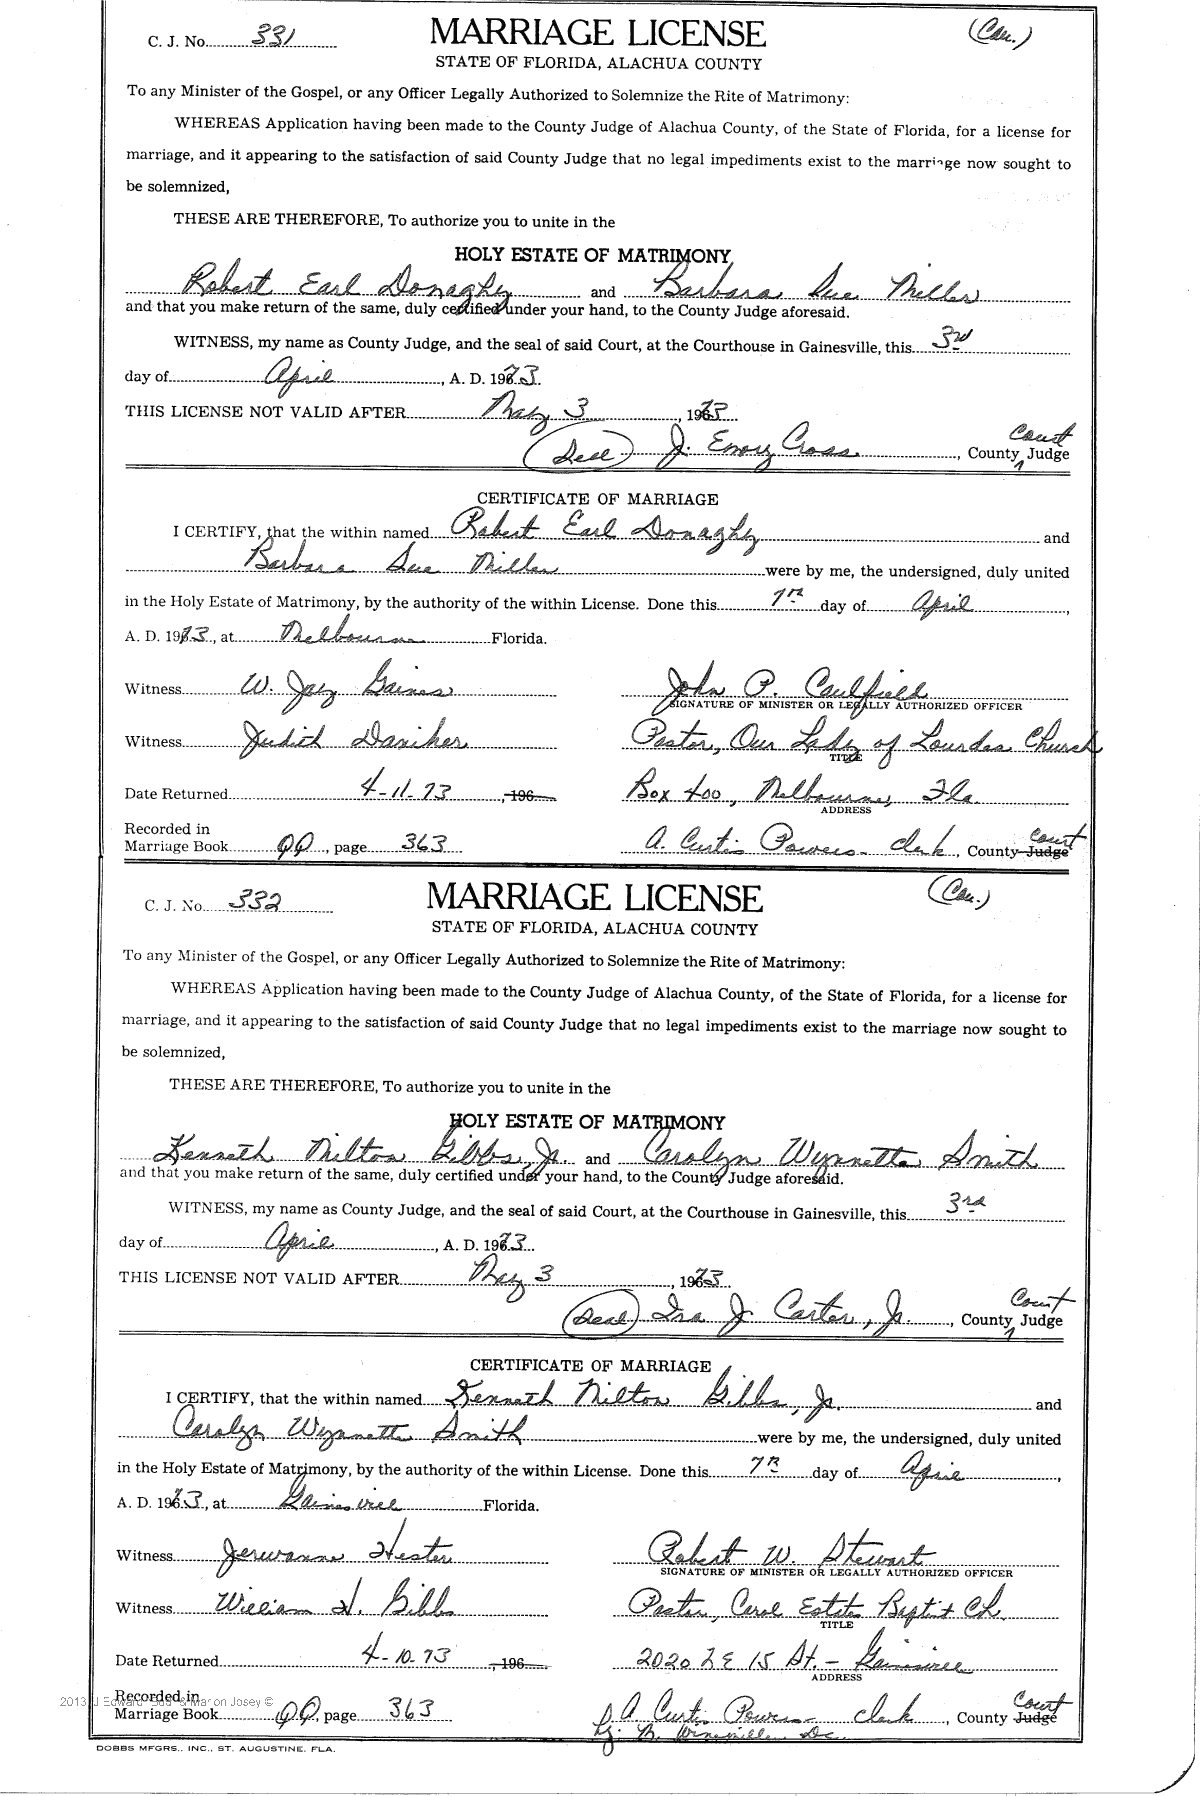 C. J. No. 331 MARRIAGE LICENSE (Cau.)
STATE OF FLORIDA, ALACHUA COUNTY
To any Minister of the Gospel, or any Officer Legally Authorized to Solemnize the Rite of Matrimony:
WHEREAS Application having been made to the County Judge of Alachua County, of the State of Florida, for a license for
marriage, and it appearing to the satisfaction of said County Judge that no legal impediments exist to the marriage now sought to
be solemnized,
THESE ARE THEREFORE, To authorize you to unite in the
HOLY ESTATE OF MATRIMONY
Robert Earl Donaghy and Barbara Sue Miller
and that you make return of the same, duly certified under your hand, to the County Judge aforesaid.
WITNESS, my name as County Judge, and the seal of said Court, at the Courthouse in Gainesville, this 3rd
day of April, A. D. 1973.
THIS LICENSE NOT VALID AFTER May 3, 1973
(Seal) J. Emory Cross, County Court Judge
CERTIFICATE OF MARRIAGE
I CERTIFY, that the within named Robert Earl Donaghy and
Barbara Sue Miller were by me, the undersigned, duly united
in the Holy Estate of Matrimony, by the authority of the within License. Done this 7th day of April,
A. D. 1973, at Melbourne Florida.
Witness W. Jay Gaines John P. Caulfield
SIGNATURE OF MINISTER OR LEGALLY AUTHORIZED OFFICER
Witness Judith Daniher Pastor, Our Lady of Lourdes Church
TITLE
Date Returned 4-11-73, 196 Box 400, Melbourne, Fla.
ADDRESS
Recorded in
Marriage Book QQ, page 363 A. Curtis Powers - Clerk, County Judge Court
C. J. No. 332 MARRIAGE LICENSE (Cau.)
STATE OF FLORIDA, ALACHUA COUNTY
To any Minister of the Gospel, or any Officer Legally Authorized to Solemnize the Rite of Matrimony:
WHEREAS Application having been made to the County Judge of Alachua County, of the State of Florida, for a license for
marriage, and it appearing to the satisfaction of said County Judge that no legal impediments exist to the marriage now sought to
be solemnized,
THESE ARE THEREFORE, To authorize you to unite in the
HOLY ESTATE OF MATRIMONY
Kenneth Milton Gibbs, Jr. and Carolyn Wynnette Smith
and that you make return of the same, duly certified under your hand, to the County Judge aforesaid.
WITNESS, my name as County Judge, and the seal of said Court, at the Courthouse in Gainesville, this 3rd
day of April, A. D. 1973.
THIS LICENSE NOT VALID AFTER May 3, 1973
(Seal) Ira J. Carter, Jr., County Court Judge
CERTIFICATE OF MARRIAGE
I CERTIFY, that the within named Kenneth Milton Gibbs, Jr. and
Carolyn Wynnette Smith were by me, the undersigned, duly united
in the Holy Estate of Matrimony, by the authority of the within License. Done this 7th day of April,
A. D. 1973, at Gainesville Florida.
Witness Jerwanna Hester Robert W. Stewart
SIGNATURE OF MINISTER OR LEGALLY AUTHORIZED OFFICER
Witness William H. Gibbs Pastor, Carol Estates Baptist Ch.
TITLE
Date Returned 4-10-73, 196 2020 SE 15 St. - Gainesville
ADDRESS
Recorded in
Marriage Book QQ, page 363 A Curtis Powers Clerk, County Judge Court
By: D.C.
DOBBS MFGRS., INC., ST. AUGUSTINE, FLA.